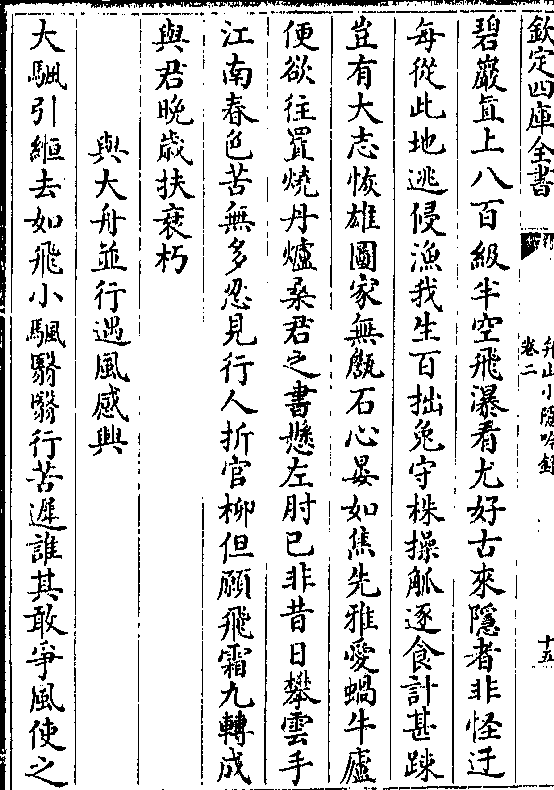 欽定四庫全書
弁山小隱吟錄
卷二
十五
碧巖直上八百級半空飛瀑看尤好古來隱者非怪迂
每從此地逃侵漁我生百拙兔守株操觚逐食計甚踈
豈有大志恢雄圖家無甔石心晏如焦先雅愛蝸牛廬
便欲往置燒丹爐桑君之書懸左肘已非昔日攀雲手
江南春色苦無多忍見行人折官柳但願飛霜九轉成
與君晚歳扶衰朽
與大舟並行遇風感興
大颿引縆去如飛小颿翳翳行苦遲誰其敢爭風使之